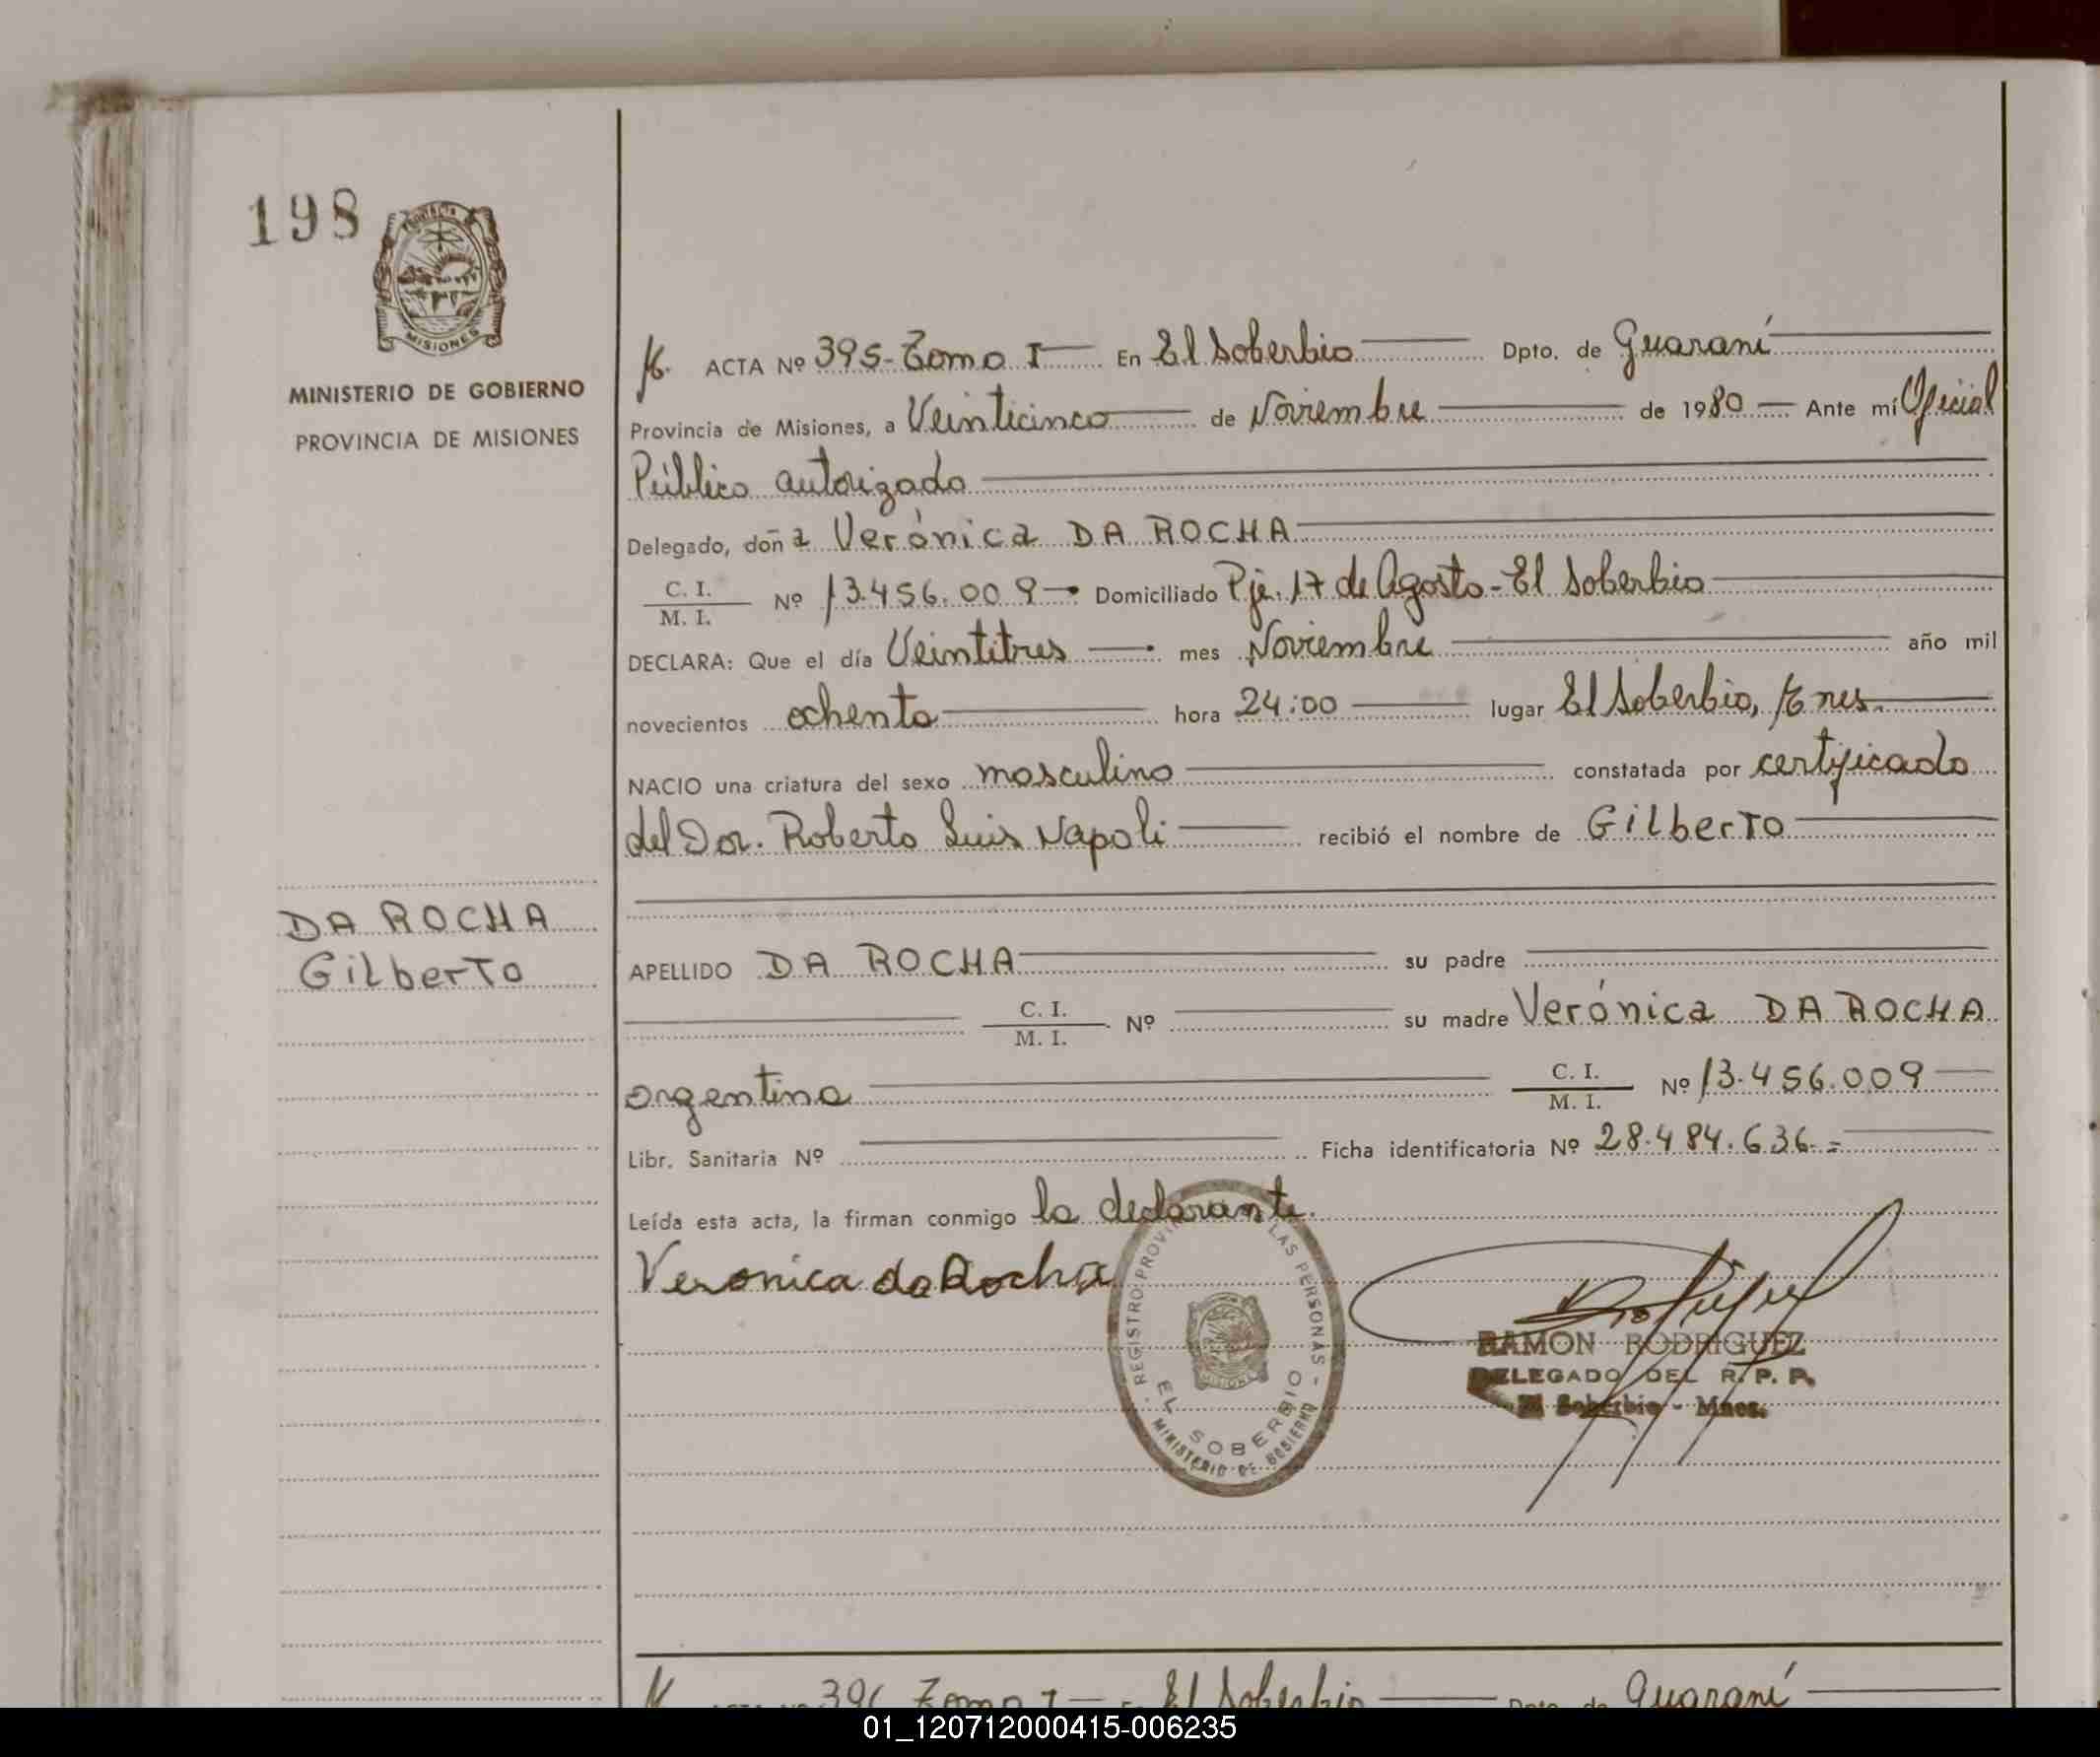 198
PROVINCIA
MISIONES
MINISTERIO DE GOBIERNO
PROVINCIA DE MISIONES
DA ROCHA
Gilberto
ACTA Nº 395-Tomo I En El Soberbio Dpto. de Guaraní
Provincia de Misiones, a Veinticinco de Noviembre de 1980 Ante mí Oficial
Público autorizado
Delegado, doña Verónica DA ROCHA
C. I.
M. I. Nº 13.456.009 Domiciliado Pje. 17 de Agosto-El Soberbio
DECLARA: Que el día Veintitres mes Noviembre año mil
novecientos ochenta hora 24:00 lugar El Soberbio,
NACIO una criatura del sexo masculino constatada por certificado
del Dor. Roberto Luis Napoli recibió el nombre de Gilberto
APELLIDO DA ROCHA su padre
C. I.
M. I. Nº su madre Verónica DA ROCHA
argentina C. I.
M. I. Nº 13.456.009
Libr. Sanitaria Nº Ficha identificatoria Nº 28.484.636.=
Leída esta acta, la firman conmigo la declarante.
Veronica da Rocha
REGISTRO PROVI LAS PERSONAS
EL SOBERBIO
MINISTERIO DE GOBIERNO
RAMON RODRIGUEZ
DELEGADO DEL R. P. P.
El Soberbio - Mnes.
396 Tomo I El Soberbio Dpto. de Guaraní
01_120712000415-006235